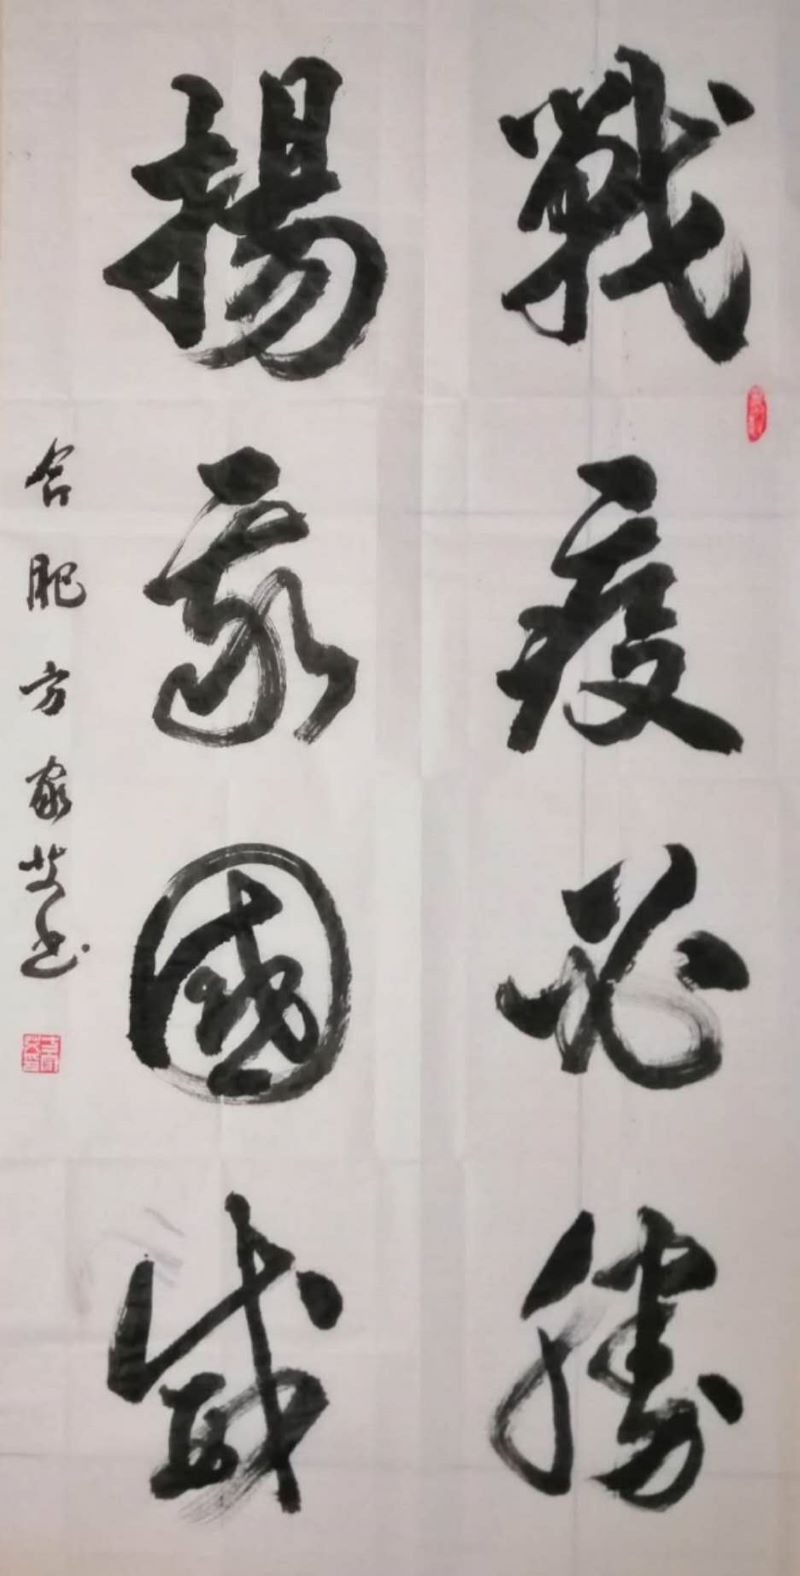 戰疫必勝
揚我國威
合肥方家书